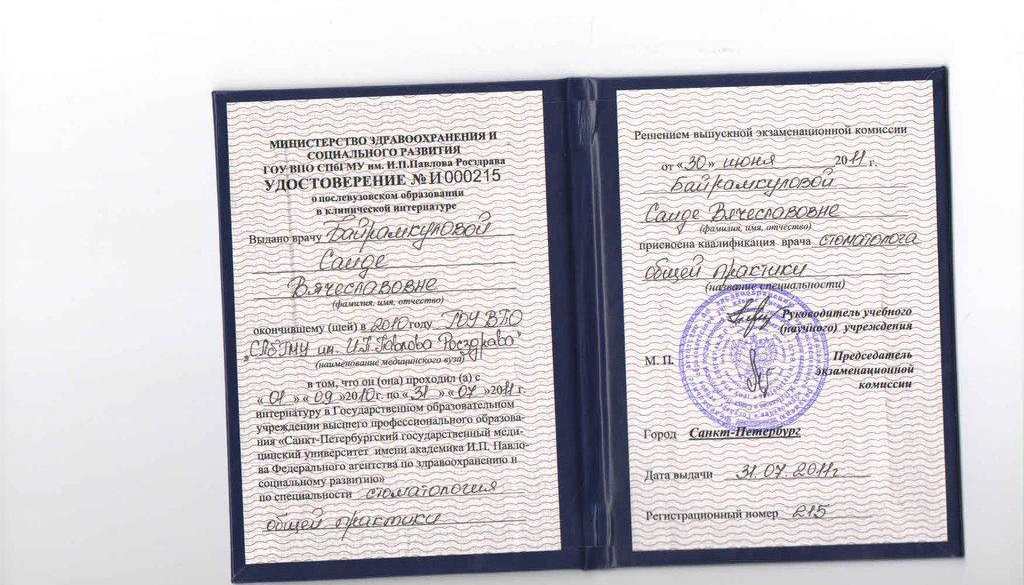 МИНИСТЕРСТВО ЗДРАВООХРАНЕНИЯ И
СОЦИАЛЬНОГО РАЗВИТИЯ
ГОУ ВПО СПбГМУ им. И.П.Павлова Росздрава
УДОСТОВЕРЕНИЕ № И 000215
о послевузовском образовании
в клинической интернатуре
Выдано врачу Байрамкуловой
Саиде
Вячеславовне
(фамилия, имя, отчество)
окончившему (шей) в 2010 году ГОУ ВПО
„СПбГМУ им. И.П.Павлова Росздрава"
(наименование медицинского вуза)
в том, что он (она) проходил (а) с
« 01 » « 09 »2010 г. по « 31 » « 07 »2011 г.
интернатуру в Государственном образовательном
учреждении высшего профессионального образова-
ния «Санкт-Петербургский государственный меди-
цинский университет имени академика И.П. Павло-
ва Федерального агентства по здравоохранению и
социальному развитию»
по специальности стоматология
общей практики
Решением выпускной экзаменационной комиссии
от «30» июня 2011 г.
Байрамкуловой
Саиде Вячеславовне
(фамилия, имя, отчество)
присвоена квалификация врача стоматолога
общей практики
(название специальности)
Руководитель учебного
(научного) учреждения
М. П.
Председатель
экзаменационной
комиссии
Город Санкт-Петербург
Дата выдачи 31.07.2011г
Регистрационный номер 215